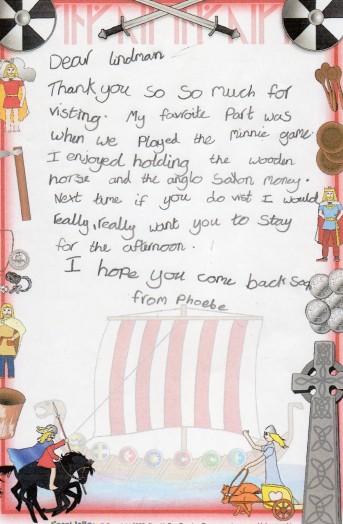 Dear lindman
Thank you so so much for
visting. My favorite part was
when we played the minnie game.
I enjoyed holding the wooden
horse and the anglo saxon money.
Next time if you do vist I would
really, really want you to stay
for the afternoon.
I hope you come back soo
from Phoebe